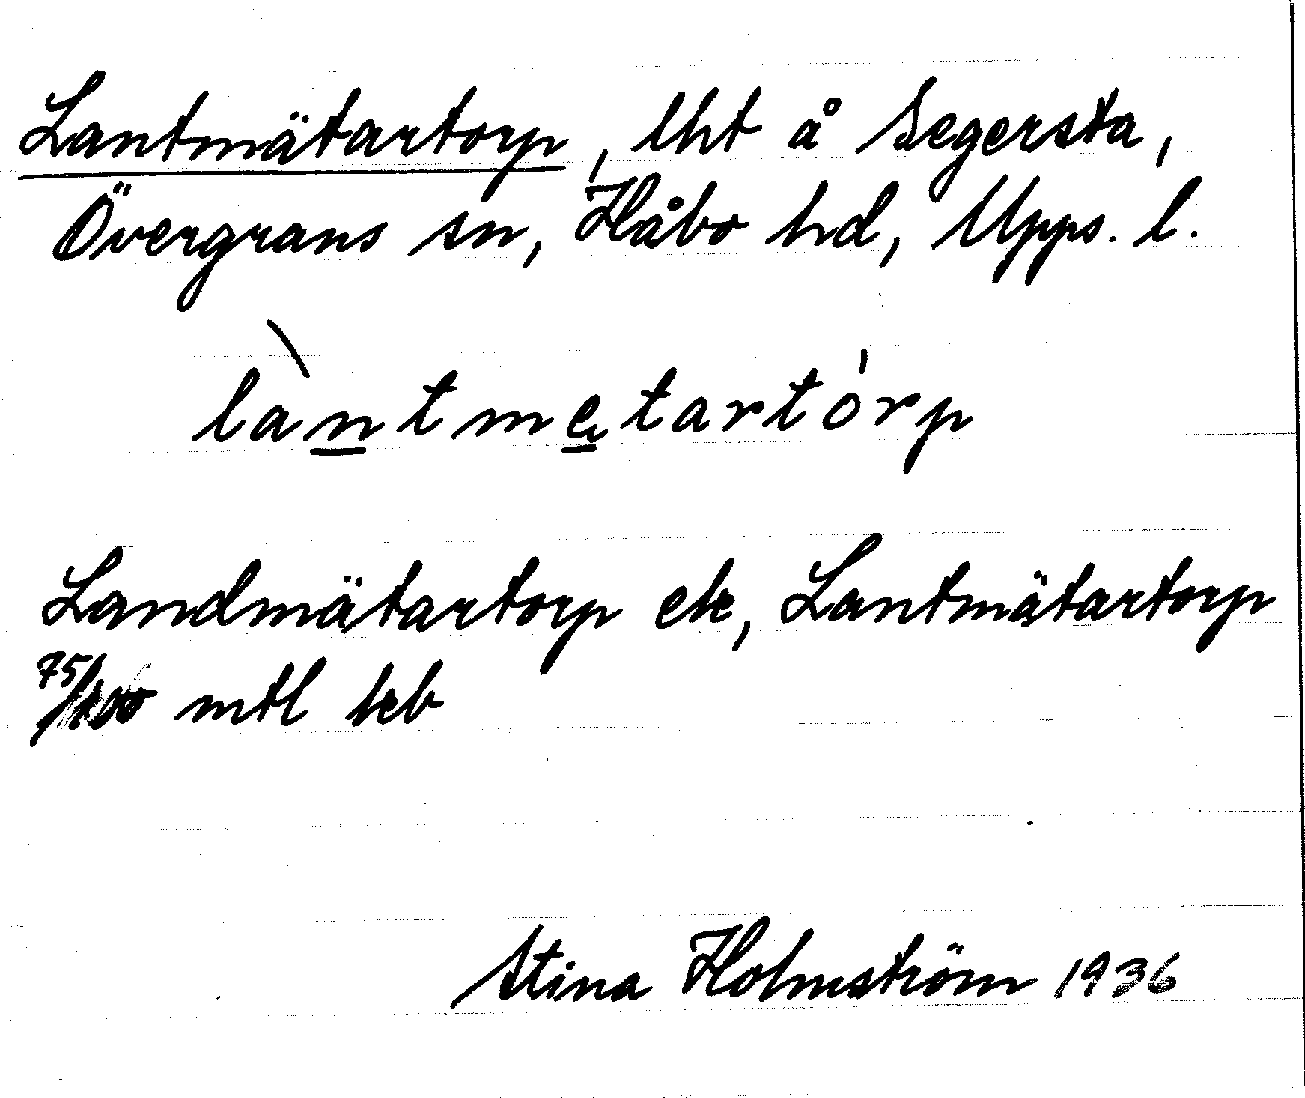 Lantmätartorp, lht å Segersta,
Övergrans sn, Håbo hd, Upps. l.
làntmetartórp
Landmätartorp ek, Lantmätartorp
75/100 mtl jeb
Stina Holmström 1936